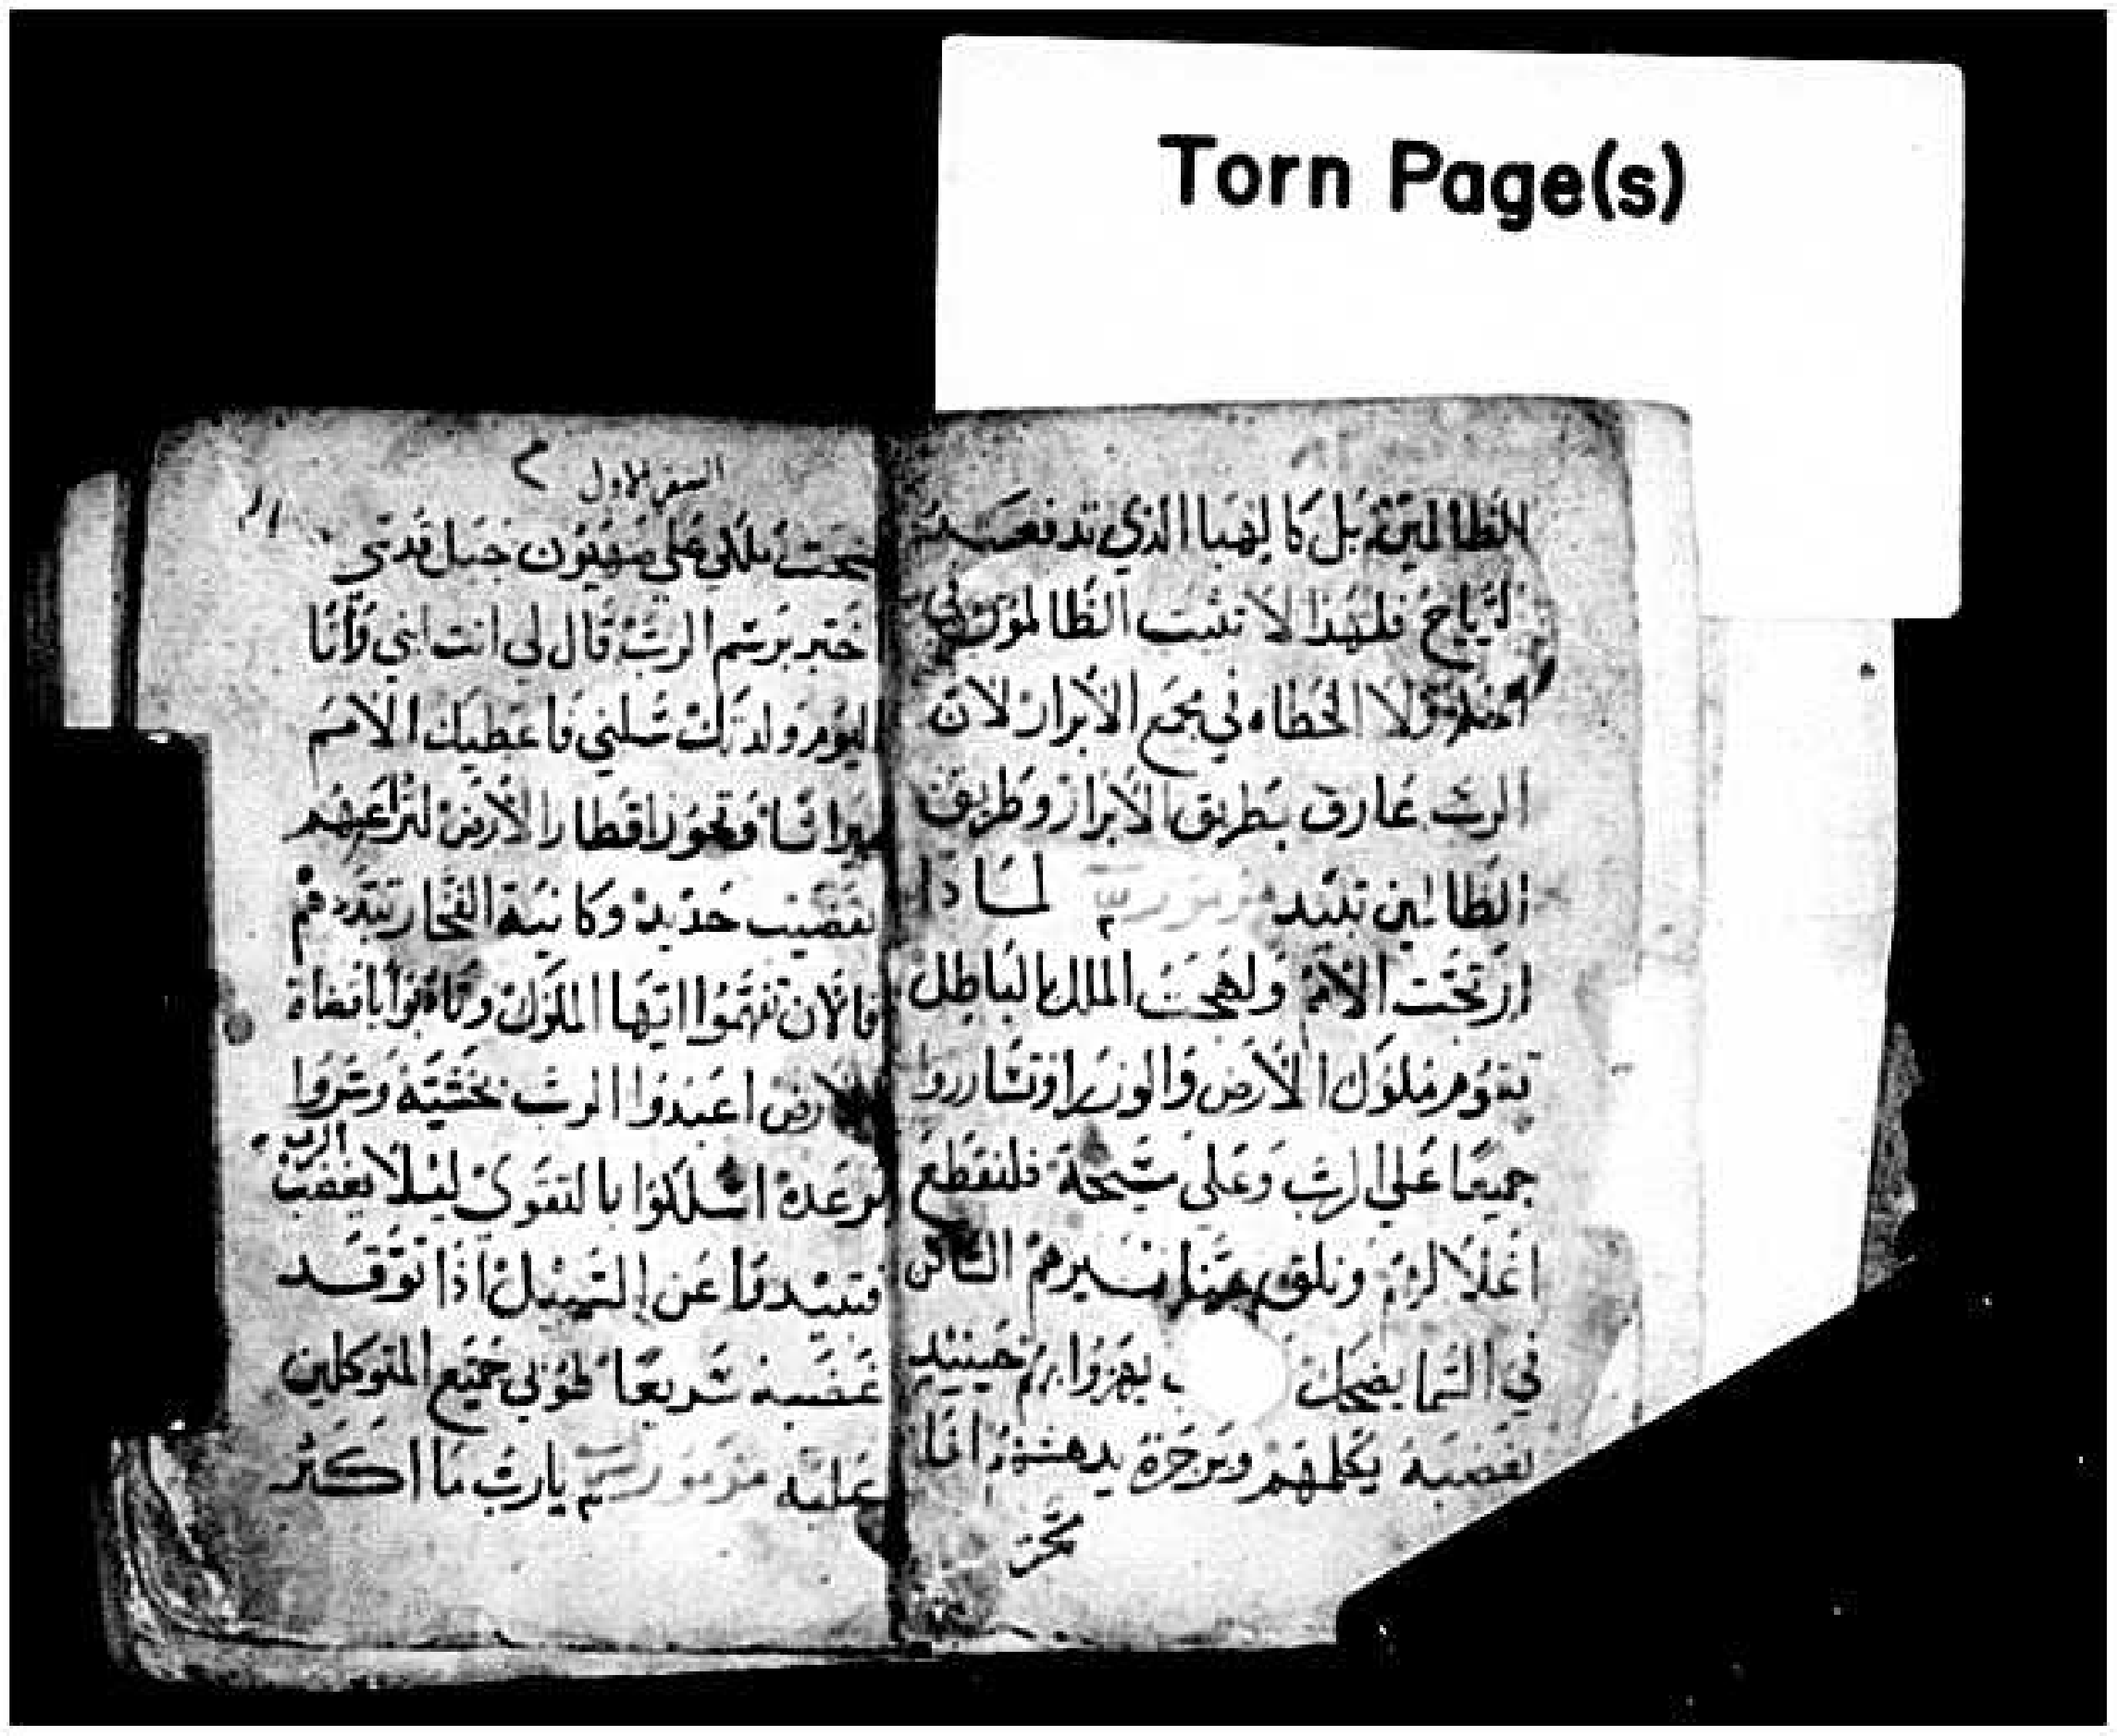 Torn Page(s)
الظالمين بل كالهبا الذي تدفعه
الرياح فلهذا لا تثبت الظالمون في
ولا الخطاه في مجمع الابرار لان
الرب عارف بطريق الابرار وطريق
الظالمين تبيد مزمور لماذا
ارتجت الامم ولهجت الملل بالباطل
تقوم ملوك الارض والوزرا وتشاوروا
جميعا على الرب وعلى مسيحه فلنقطع
اغلالهم ونلقي عنا نيرهم الساكن
في السما يضحك يهزوا بهم حينيد
بغضبه يكلمهم وبزجره يدهشهم انا
السفر الاول
ملكي على صهيون جبل قدسي
اختبر برسم الرب قال لي انت ابني وانا
اليوم ولدتك سلني فاعطيك الامم
ميراثا وتحوز اقطار الارض لترعاهم
بقضيب حديد وكانية الفخار تبددهم
فالان تفهموا ايها الملوك وتادبوا يا قضاة
الارض اعبدوا الرب بخشية وسروا
الرب
برعدة اسلكوا بالتقوى ليلا يغضب
فتبيدوا عن السبيل اذا توقد
غضبه سريعا طوبى جميع المتوكلين
عليه مزمور يارب ما اكثر